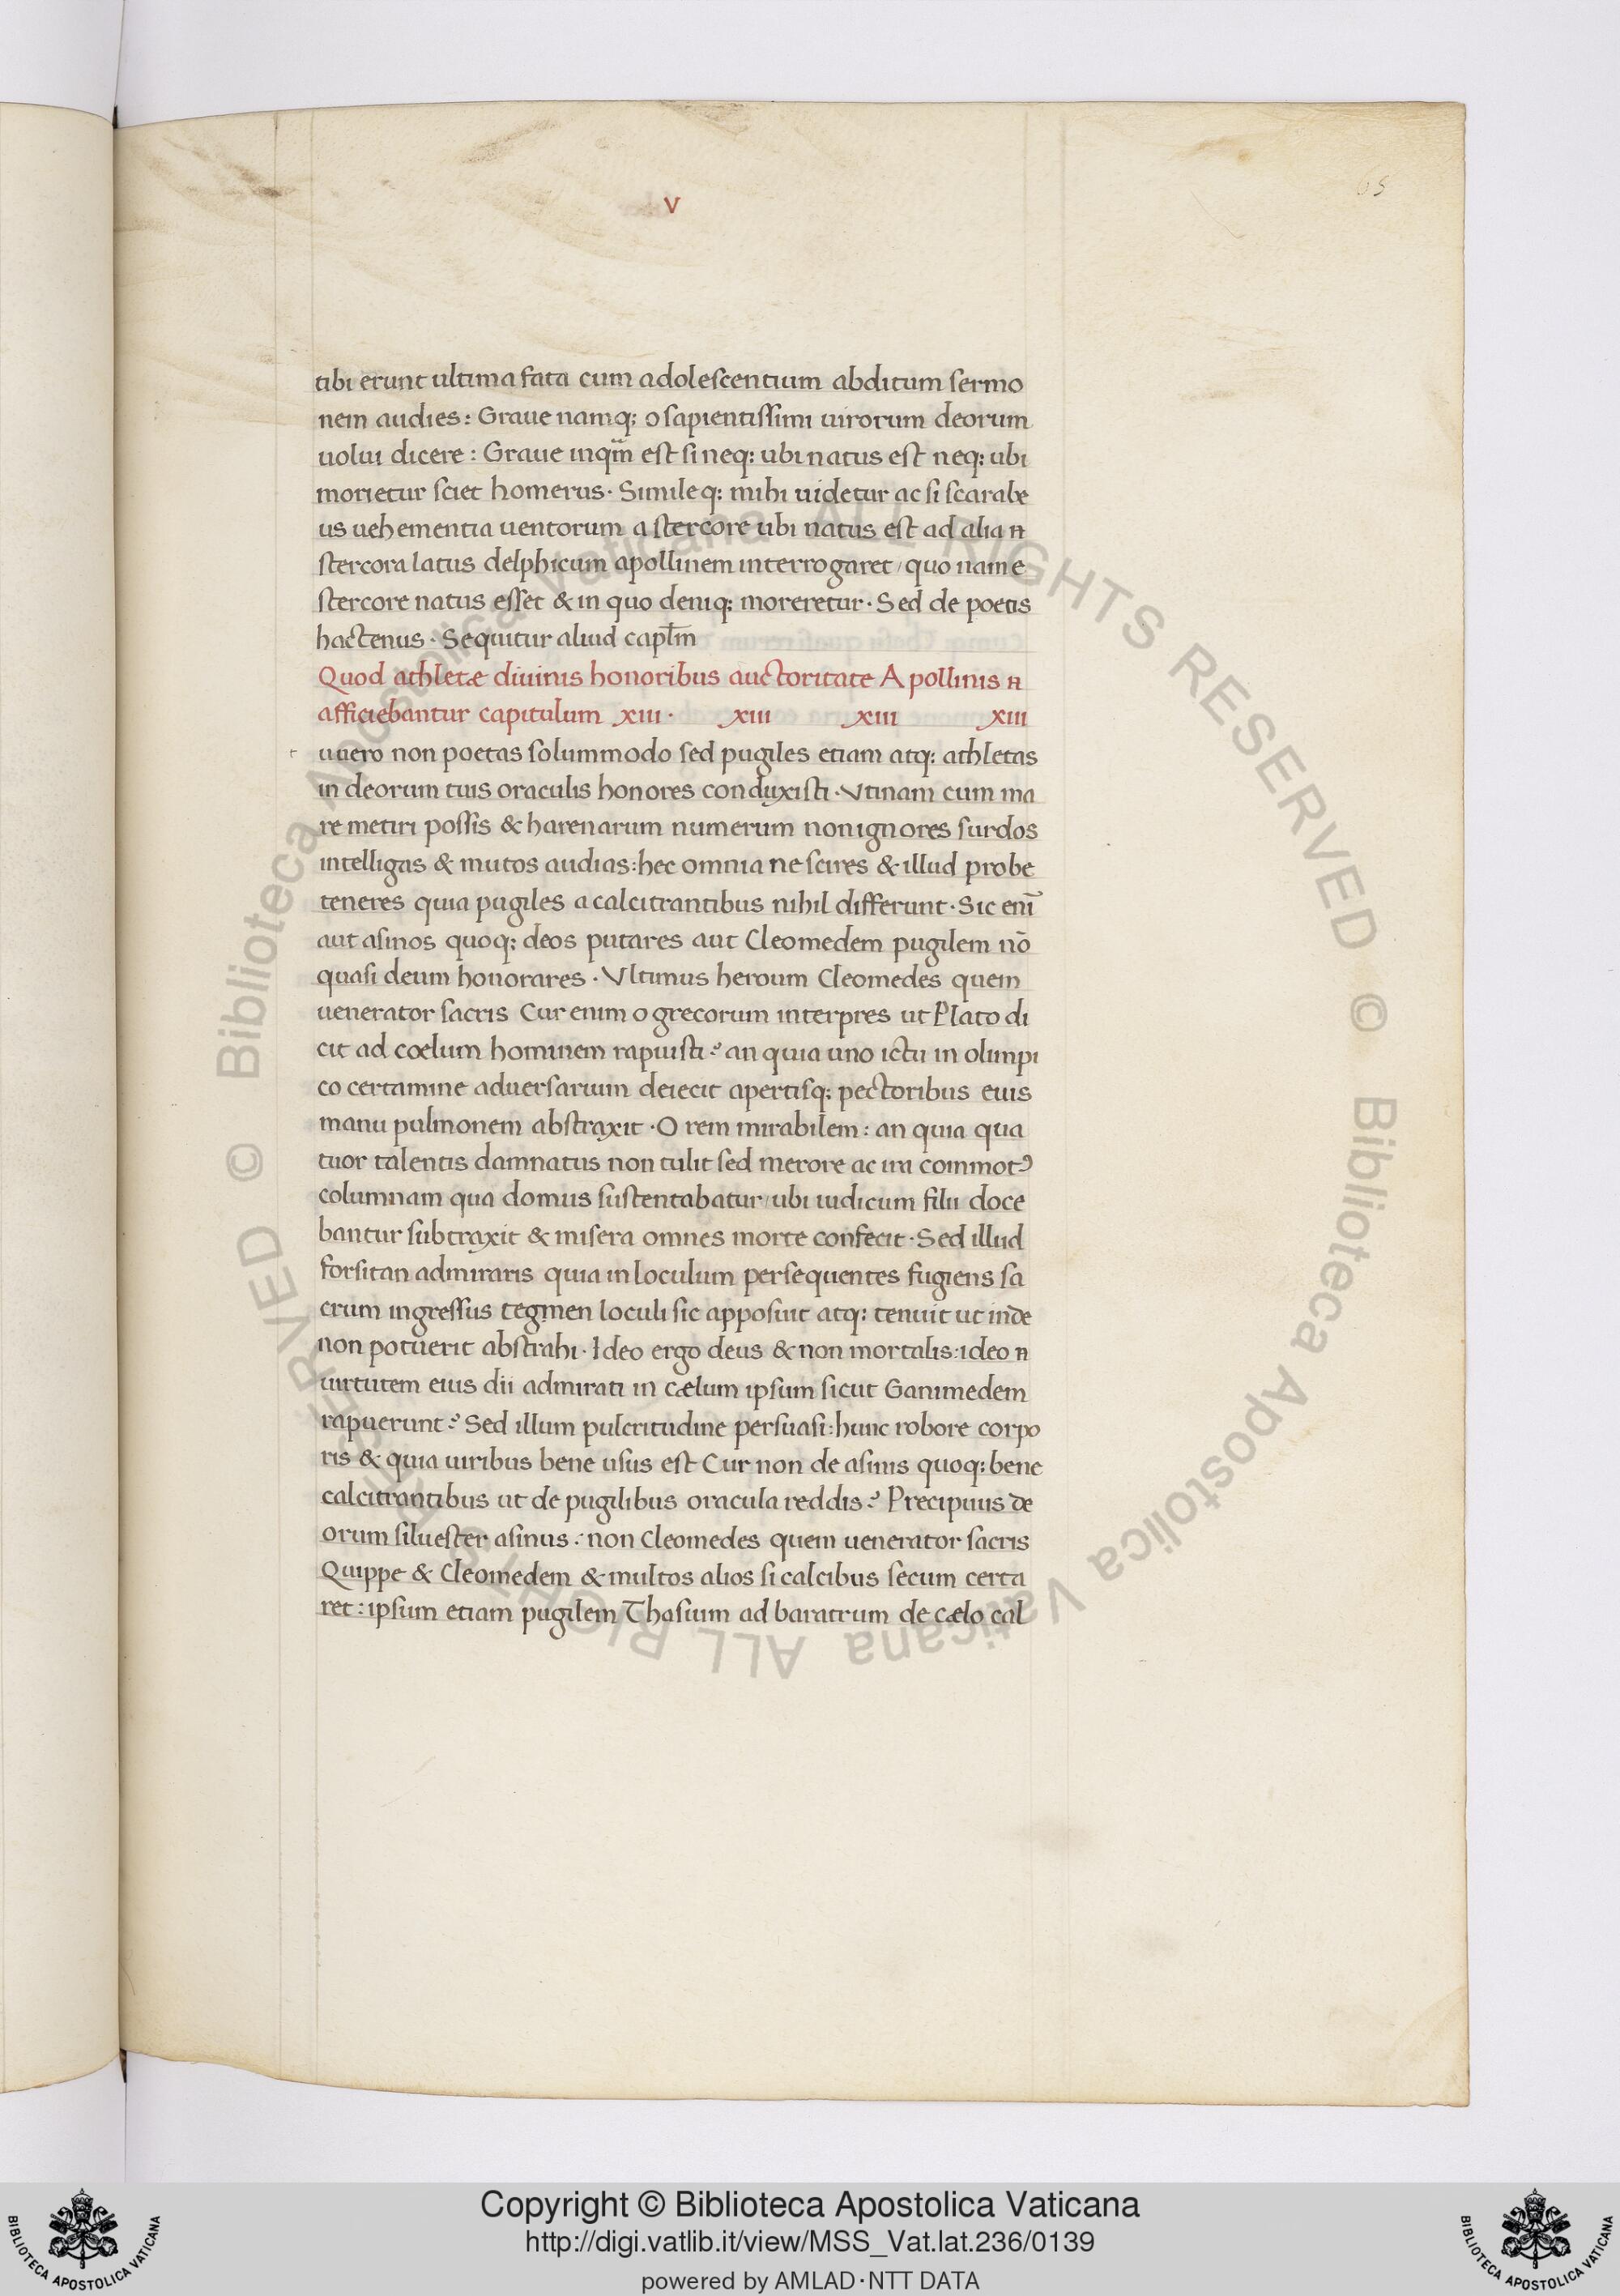 v
65
tibi erunt ultima fata cum adolescentium abditum sermo
nem audies: Graue namq; o sapientissimi uirorum deorum
uolui dicere: Graue inqm̃ est si neq; ubi natus est neq; ubi
morietur sciet homerus. Simile q; mihi uidetur ac si scarabe
us uehementia uentorum a stercore ubi natus est ad alia n
stercora latus delphicum apollinem interrogaret / quo nam e
stercore natus esset & in quo deniq; moreretur. Sed de poetis
hactenus. Sequitur aliud capl̃m
Quod athletæ diuinis honoribus auctoritate Apollinis n
afficiebantur capitulum xiii. xiii xiii xiii
t uuero non poetas solummodo sed pugiles etiam atq; athletas
in deorum tuis oraculis honores conduxisti. Vtinam cum ma
re metiri possis & harenarum numerum non ignores surdos
intelligas & mutos audias: hec omnia nescires & illud probe
teneres quia pugiles a calcitrantibus nihil differunt. Sic enĩ
aut asinos quoq; deos putares aut Cleomedem pugilem nõ
quasi deum honorares. Vltimus heroum Cleomedes quem
uenerator sacris Cur enim o grecorum interpres ut Plato di
cit ad cœlum hominem rapuisti? an quia uno ictu in olimpi
co certamine aduersarium deiecit apertisq; pectoribus eius
manu pulmonem abstraxit. O rem mirabilem: an quia qua
tuor talentis damnatus non tulit sed merore ac ira commotꝰ
columnam qua domus sustentabatur / ubi iudicum filii doce
bantur subtraxit & misera omnes morte confecit. Sed illud
forsitan admiraris quia in loculum persequentes fugiens sa
crum ingressus tegmen loculi sic apposuit atq; tenuit ut inde
non potuerit abstrahi. Ideo ergo deus & non mortalis: ideo n
uirtutem eius dii admirati in cælum ipsum sicut Ganimedem
rapuerunt? Sed illum pulcritudine persuasi: hunc robore corpo
ris & quia uiribus bene usus est Cur non de asinis quoq; bene
calcitrantibus ut de pugilibus oracula reddis? Precipuus de
orum siluester asinus: non Cleomedes quem uenerator sacris
Quippe & Cleomedem & multos alios si calcibus secum certa
ret: ipsum etiam pugilem Thasium ad baratrum de cælo cal
© Biblioteca Apostolica Vaticana ALL RIGHTS RESERVED © Biblioteca Apostolica Vaticana ALL RIGHTS RESERVED
Copyright © Biblioteca Apostolica Vaticana
http://digi.vatlib.it/view/MSS_Vat.lat.236/0139
powered by AMLAD·NTT DATA
BIBLIOTECA APOSTOLICA VATICANA
BIBLIOTECA APOSTOLICA VATICANA